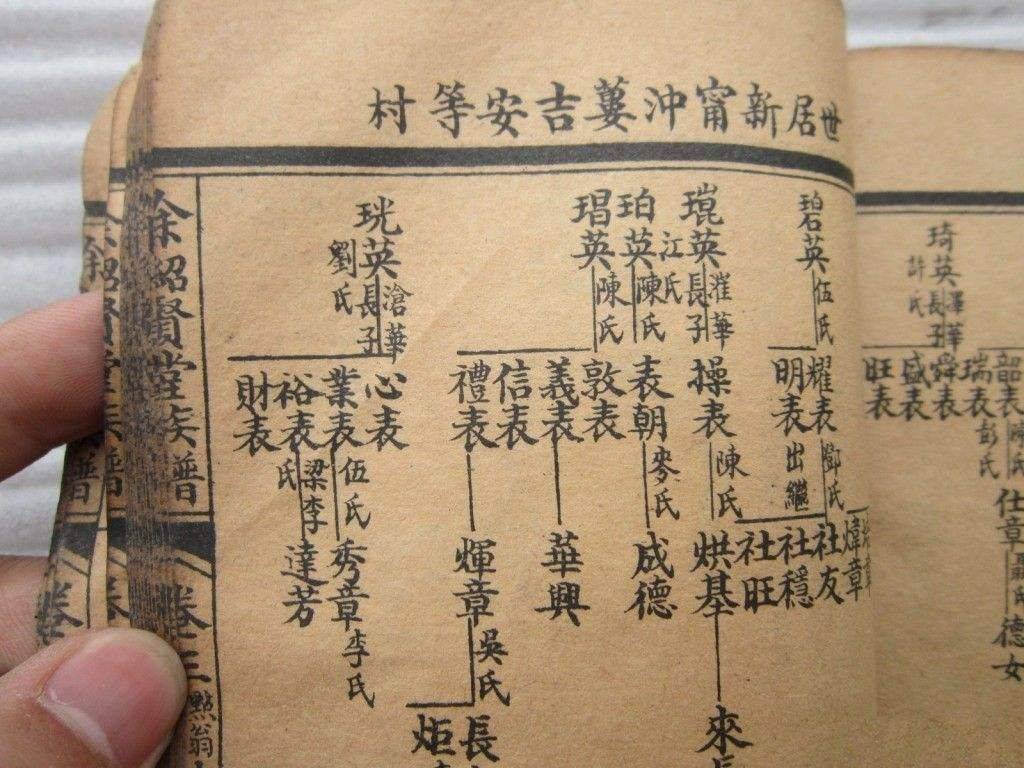 世居新甯沖蔞吉安等村
琦英
澤華長子
許氏
韶表
陳氏
瑞表
彭氏
舜表
盛表
旺表
仕章
德女
碧英
伍氏
琨英
華長子
江氏
珀英
陳氏
琩英
陳氏
珖英
滄華長子
劉氏
耀表
鄧氏
明表
出繼
操表
陳氏
表朝
麥氏
敦表
義表
信表
禮表
心表
業表
伍氏
裕表
梁李氏
財表
煒章
社友
社穩
社旺
烘基
成德
華興
煇章
吳氏
秀章
李氏
達芳
來長
長
炬
余紹賢堂族譜
卷三
點翁